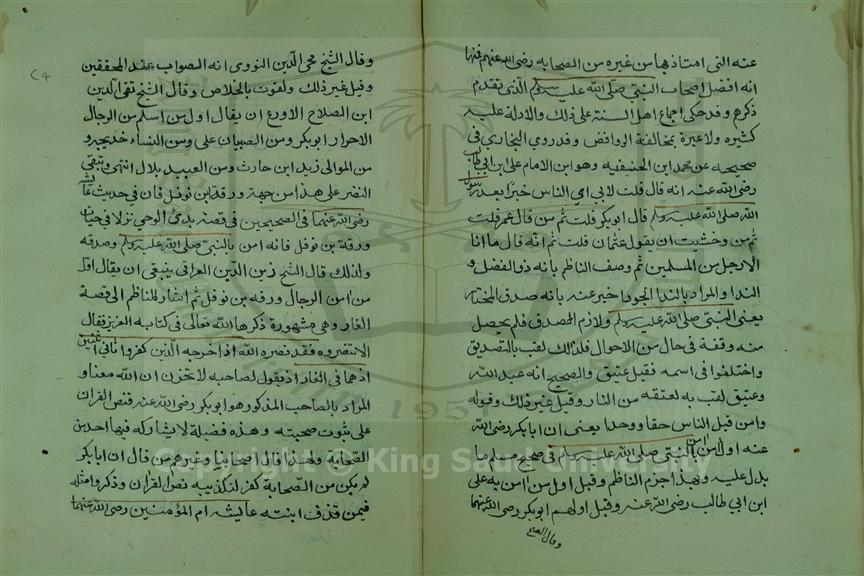 عنه التي امتاز بها من غيره من الصحابه رضي الله عنهم فمنها
انه افضل اصحاب النبي صلى الله عليه وسلم الذي تقدم
ذكرهم وقد حكى اجماع اهل السنة على ذلك والادلة عليه
كثيره ولا عبرة بمخالفة الروافض وقد روى البخاري في
صحيحه عن محمد ابن الحنفيه وهو ابن الامام على ابن ابي طالب
رضي الله عنه انه قال قلت لابي اي الناس خير بعد رسول
الله صلى الله عليه وسلم قال ابو بكر قلت ثم من قال عمر قلت
ثم من وخشيت ان يقول عثمان قلت ثم انت قال ما انا
الا رجل من المسلمين ثم وصف الناظم بانه ذو الفضل و
الندا والمراد بالندا الجود اخبر عنه بانه صدق المختار
يعني النبي صلى الله عليه وسلم ولازم المصدق فلم يحصل
منه وقفة في حال من الاحوال فلذلك لقب بالتصديق
واختلفوا في اسمه فقيل عتيق والصحيح انه عبد الله
وعتيق لقب به لعتقه من النار وقيل غير ذلك وقوله
وامن قبل الناس حقا ووحدا يعني ان ابا بكر رضي الله
عنه اول من امن بالنبي صلى الله عليه وسلم في صحيح مسلم ما
يدل عليه وبهذا جزم الناظم وقيل اول من امن به على
ابن ابي طالب رضي الله عنه وقيل اولهم ابو بكر رضي الله عنهما
وقال الشيخ
وقال الشيخ محي الدين النووى انه الصواب عند المحققين
وقيل غير ذلك ولقوت بالخلاص وقال الشيخ تقي الدين
ابن الصلاح الاورع ان يقال اول من اسلم من الرجال
الاحرار ابو بكر ومن الصبيان على ومن النساء خديجه و
من الموالى زيد ابن حارث ومن العبيد بلال انتهى وتبقى
النضر على هذا من جهة ورقة ابن نوفل فان في حديث عايشه
رضي الله عنهما في الصحيحين في قصة بدئ الوحي نزلا في حياة
ورقة بن نوفل فانه امن بالنبي صلى الله عليه وسلم وصدقه
ولذلك قال الشيخ زين الدين العراقي ينبغي ان يقال اول
من امن من الرجال ورقه بن نوفل ثم اشار الناظم الى قصة
الغار وهي مشهورة ذكرها الله تعالى في كتابه العزيز فقال
الا تنصروه فقد نصره الله اذ اخرجه الذين كفروا ثاني اثنين
اذ هما في الغار اذ يقول لصاحبه لا تحزن ان الله معنا و
المراد بالصاحب المذكور هو ابو بكر رضي الله عنه فنص القران
على ثبوت صحبته وهذه فضيلة لا يشاركه فيها احد من
الصحابة ولهذا قال اصحابنا وغيرهم من قال ان ابا بكر
لم يكن من الصحابة كفر لتكذيبه نص القران وذكروا مثله
فيمن قذف ابنته عايشه ام المؤمنين رضي الله عنهما
Copyright © King Saud University
1957